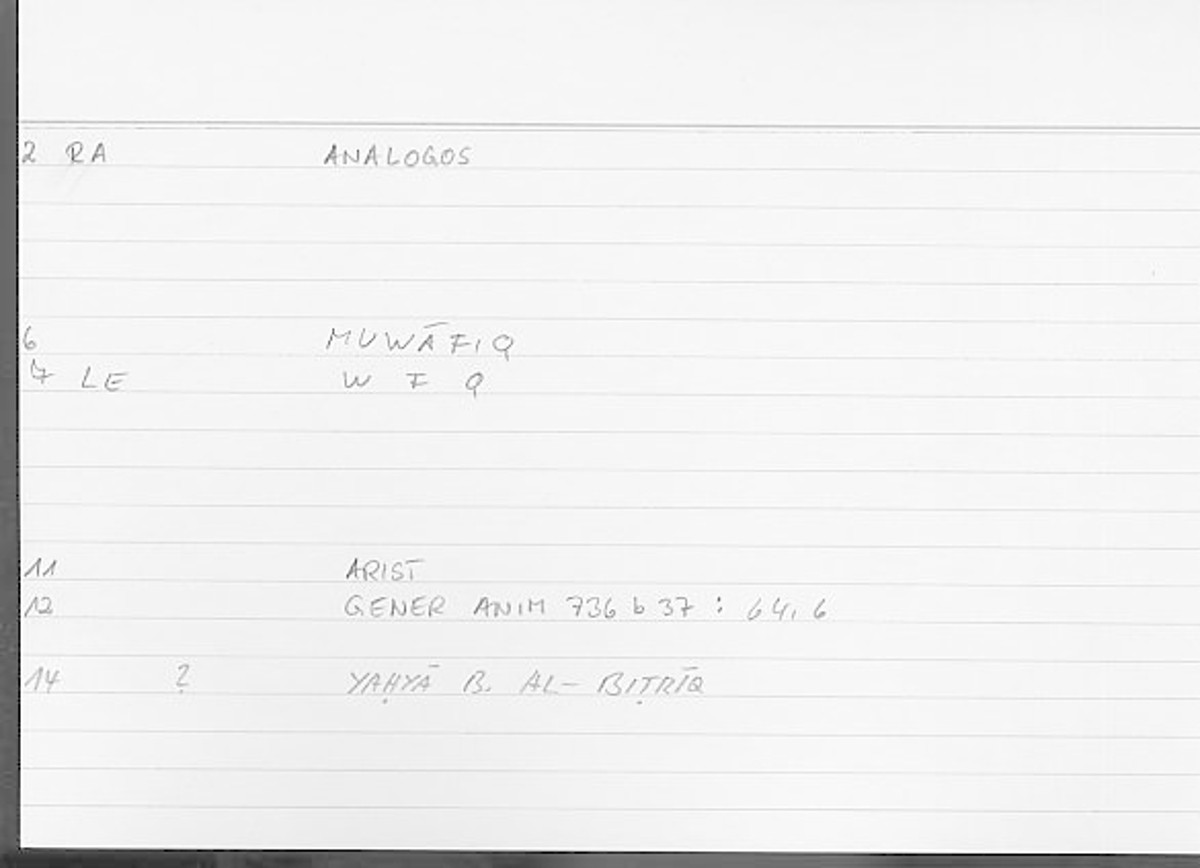 2 RA ANALOGOS
6 MUWĀFIQ
7 LE W F Q
11 ARIST
12 GENER ANIM 736 b 37 : 64, 6
14 ? YAḤYĀ B. AL-BIṬRĪQ